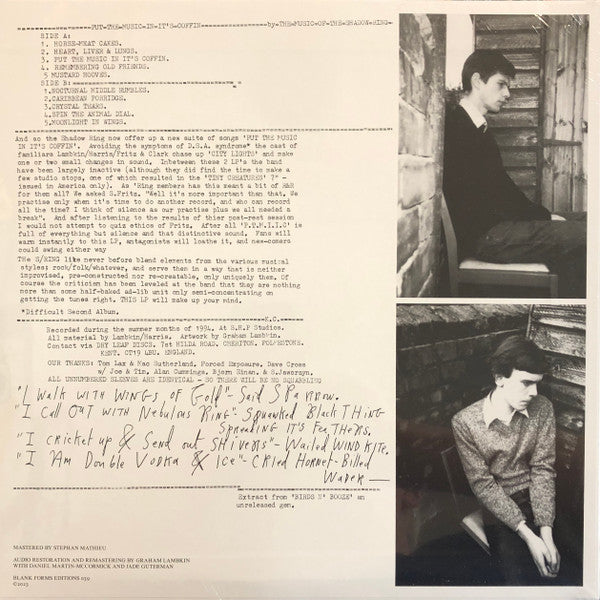 PUT-THE-MUSIC-IN-IT'S-COFFIN by-THE-MUSIC-OF-THE-SHADOW-RING-
SIDE A:
1. HORSE-MEAT CAKES.
2. HEART, LIVER & LUNGS.
3. PUT THE MUSIC IN IT'S COFFIN.
4. REMEMBERING OLD FRIENDS.
5 MUSTARD HOOVES.
SIDE B:
1.NOCTURNAL MIDDLE RUMBLES.
2.CARIBBEAN PORRIDGE.
3.CRYSTAL TEARS.
4.SPIN THE ANIMAL DIAL.
5.MOONLIGHT IN WINGS.
And so the Shadow Ring now offer up a new suite of songs 'PUT THE MUSIC
IN IT'S COFFIN'. Avoiding the symptoms of D.S.A. syndrome* the cast of
familiars Lambkin/Harris/Fritz & Clark chase up 'CITY LIGHTS' and make
one or two small changes in sound. Inbetween these 2 LP's the band
have been largely inactive (although they did find the time to make a
few studio stops, one of which resulted in the 'TINY CREATURES' 7" -
issued in America only). As 'Ring members has this meant a bit of R&R
for them all? We asked S.Fritz. "Well it's more important than that. We
practise only when it's time to do another record, and who can record
all the time? I think of silence as our practise plus we all needed a
break". And after listening to the results of thier post-rest session
I would not attempt to quiz ethics of Fritz. After all 'P.T.M.I.I.C' is
full of everything but silence and that distinctive sound. Fans will
warm instantly to this LP, antagonists will loathe it, and new-comers
could swing either way
The S/RING like never before blend elements from the various musical
styles; rock/folk/whatever, and serve then in a way that is neither
improvised, pre-constructed nor re-creatable, only uniquely them. Of
course the criticism has been leveled at the band that they are nothing
more than some half-baked ad-lib unit only semi-concentrating on
getting the tunes right. THIS LP will make up your mind.
*Difficult Second Album.
K.C.
Recorded during the summer months of 1994. At S.H.P Studios.
All material by Lambkin/Harris. Artwork by Graham Lambkin.
Contact via DRY LEAF DISCS. 7st HILDA ROAD. CHERITON. FOLKESTONE.
KENT. CT19 4BU. ENGLAND.
OUR THANKS: Tom Lax & Mac Sutherland, Forced Exposure, Dave Cross
w/ Joe & Tim, Alan Cummings, Bjorn Kinan, &
ALL UNNUMBERED SLEEVES ARE IDENTICAL - SO THERE WILL BE NO SQUABBLING
"I WALK WITH WINGS OF GOLD" - SAID SPARROW.
"I CALL OUT WITH NEBULOUS RING" - SQUAWKED BLACK THING
SPREADING IT'S FEATHERS.
"I CRICKET UP & SEND OUT SHIVERS" - WAILED WIND KITE.
"I AM DOUBLE VODKA & ICE" - CRIED HORNET-BILLED
WADER —
Extract from 'BIRDS N' BOOZE' an
unreleased gem.
MASTERED BY STEPHAN MATHIEU
AUDIO RESTORATION AND REMASTERING BY GRAHAM LAMBKIN
WITH DANIEL MARTIN-MCCORMICK AND JADE GUTERMAN
BLANK FORMS EDITIONS 039
©2023